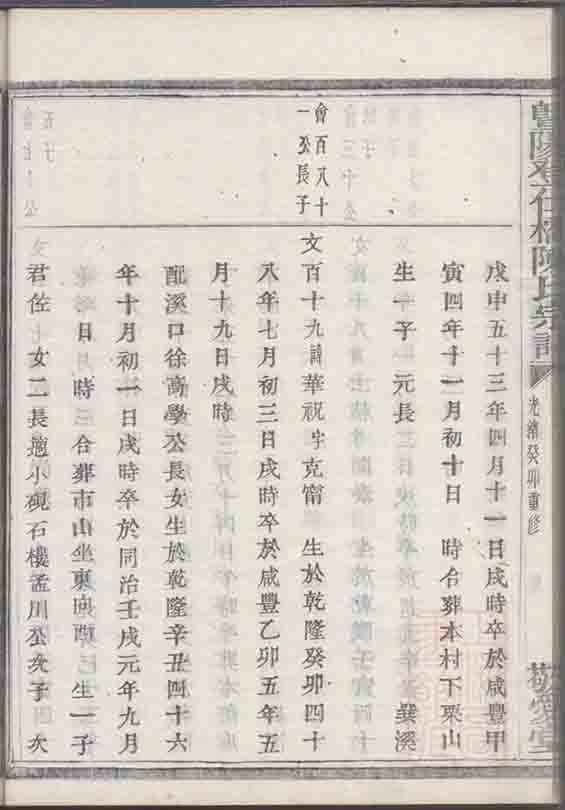 陳氏宗譜
光緒癸卯重修
敬愛堂
戊申五十三年四月十一日戌時卒於咸豐甲
寅四年十一月初十日 時合葬本村下栗山
生一子 元長
會百八十
一公長子
文百十九諱華祝字克甯 生於乾隆癸卯四十
八年七月初三日戌時卒於咸豐乙卯五年五
月十九日戌時
配溪口徐高學公長女生於乾隆辛丑四十六
年十月初一日戌時卒於同治壬戌元年九月
日 時 合葬市山坐東向 生一子
君佐 女二長適小硯石樓孟川公次子 次